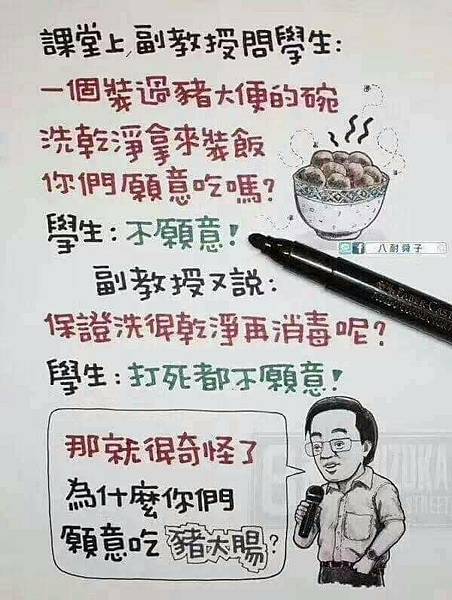 課堂上,副教授問學生:
一個裝過豬大便的碗
洗乾淨拿來裝飯
你們願意吃嗎?
學生:不願意!
八耐舜子
副教授又說:
保證洗很乾淨再消毒呢?
學生:打死都不願意!
那就很奇怪了
為什麼你們
願意吃豬大腸?